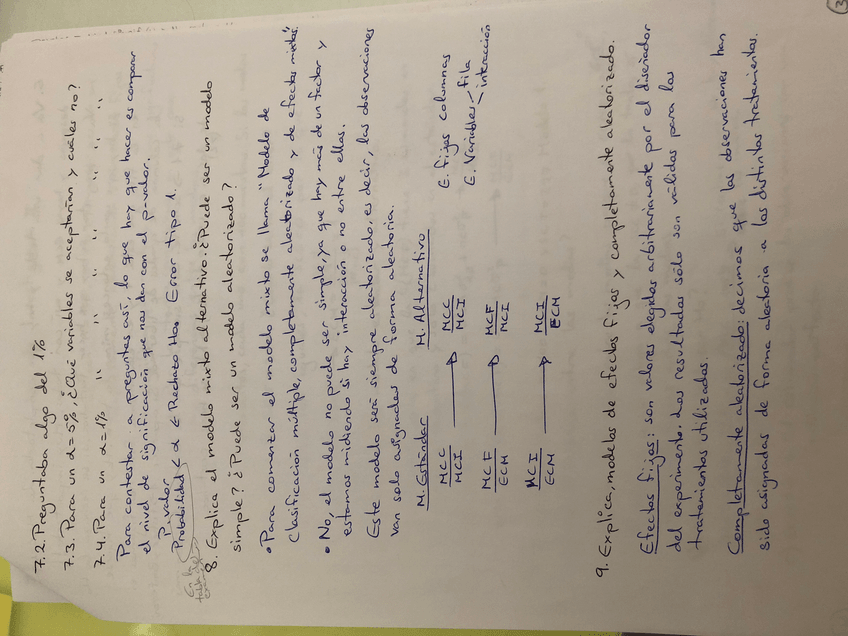 3
7.2. Preguntaba algo del 1%
7.3. Para un α=5%, ¿Qué variables se aceptarían y cuáles no?
7.4. Para un α=1% " " " " " " "
Para contestar a preguntas así, lo que hay que hacer es comparar
el nivel de significación que nos dan con el p-valor.
P. valor
Probabilidad < α ∈ Rechazo H₀, Error tipo 1.
En la
tabla de
8. Explica el modelo mixto alternativo. ¿Puede ser un modelo
simple? ¿Puede ser un modelo aleatorizado?
• Para comenzar el modelo mixto se llama "Modelo de
Clasificación múltiple, completamente aleatorizado y de efectos mixtos".
• No, el modelo no puede ser simple, ya que hay más de un factor y
estamos midiendo si hay interacción o no entre ellas.
Este modelo será siempre aleatorizado, es decir, las observaciones
van solo asignadas de forma aleatoria.
M. Estándar M. Alternativo
MCC MCC E. Fijas columnas
MCI MCI E. Variables fila
interacción
MCF MCF
ECM MCI
MCI MCI
ECM ECM
9. Explica, modelos de efectos fijos y completamente aleatorizado.
Efectos fijos: son valores elegidos arbitrariamente por el diseñador
del experimento. Los resultados sólo son válidos para los
tratamientos utilizados.
Completamente aleatorizado: decimos que las observaciones han
sido asignadas de forma aleatoria a los distintos tratamientos.